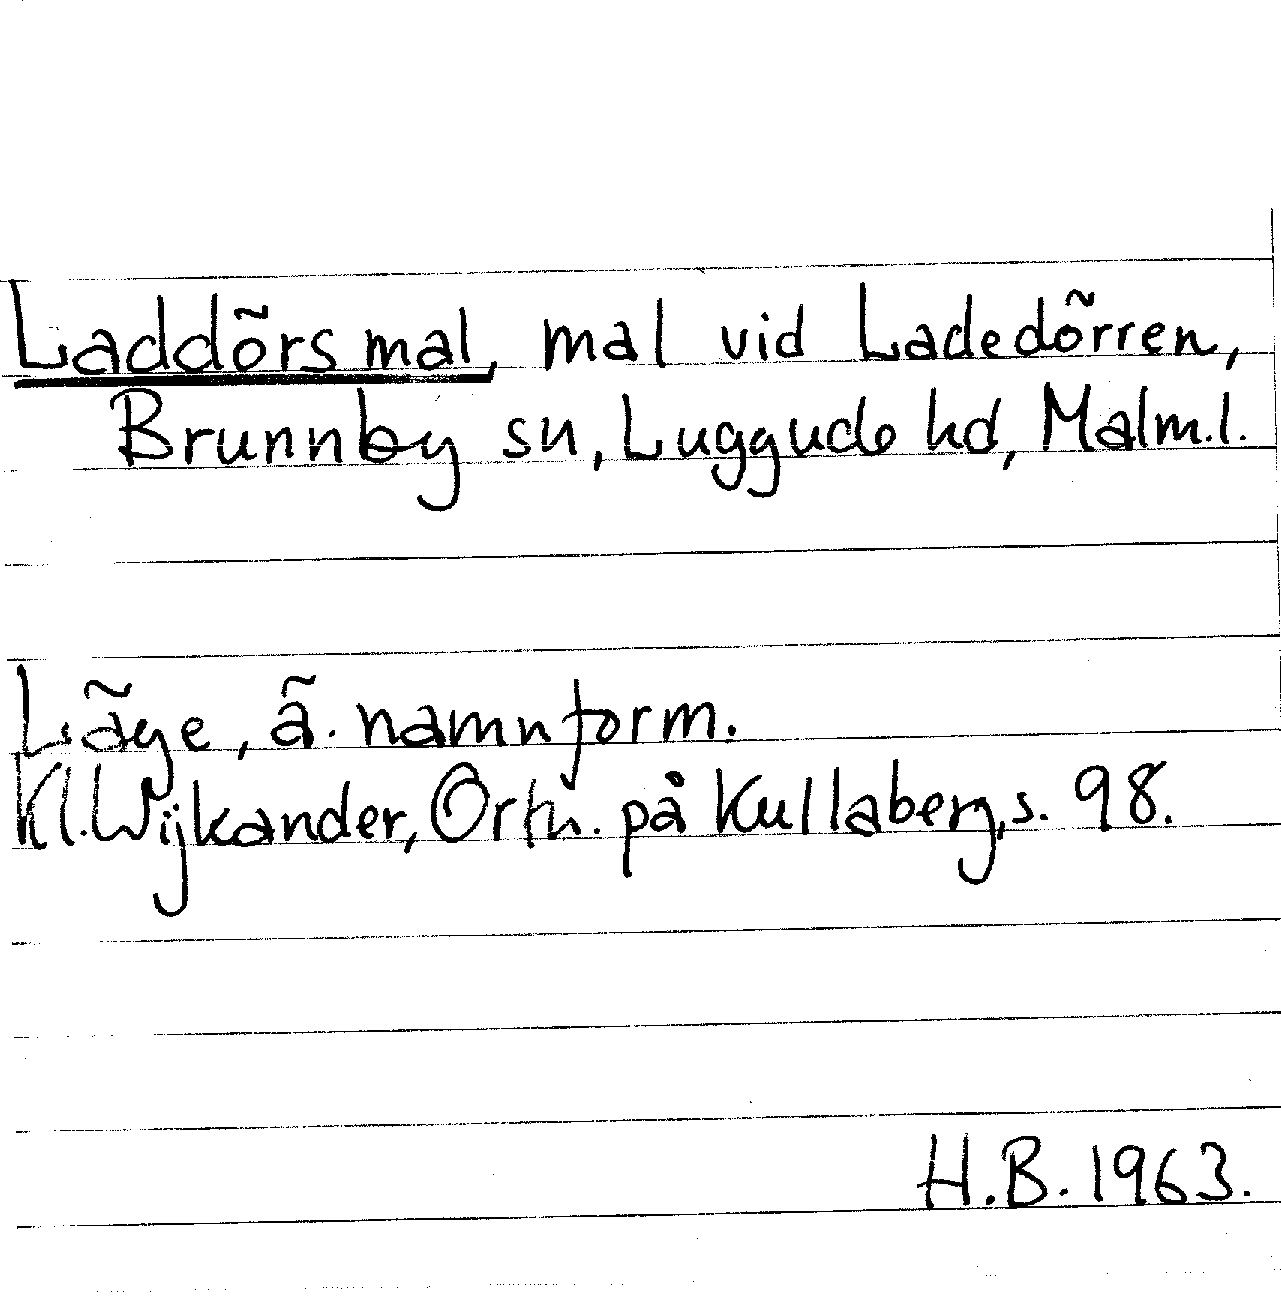 Laddörs mal, mal vid Ladedörren,
Brunnby sn, Luggude hd, Malm.l.
Läge, ä. namnform.
Kl. Wijkander, Ortn. på Kullaberg, s. 98.
H.B. 1963.